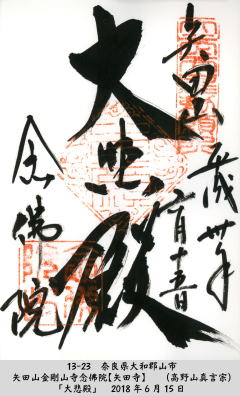 矢田山
平成卅年
六月十五日
大悲殿
念佛院
13-23 奈良県大和郡山市
矢田山金剛山寺念佛院【矢田寺】 (高野山真言宗)
「大悲殿」 2018年6月15日